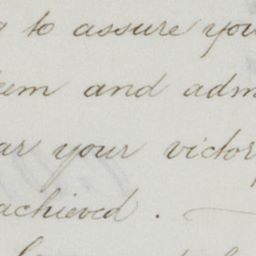 to assure you
and adm
your victor
achieved.